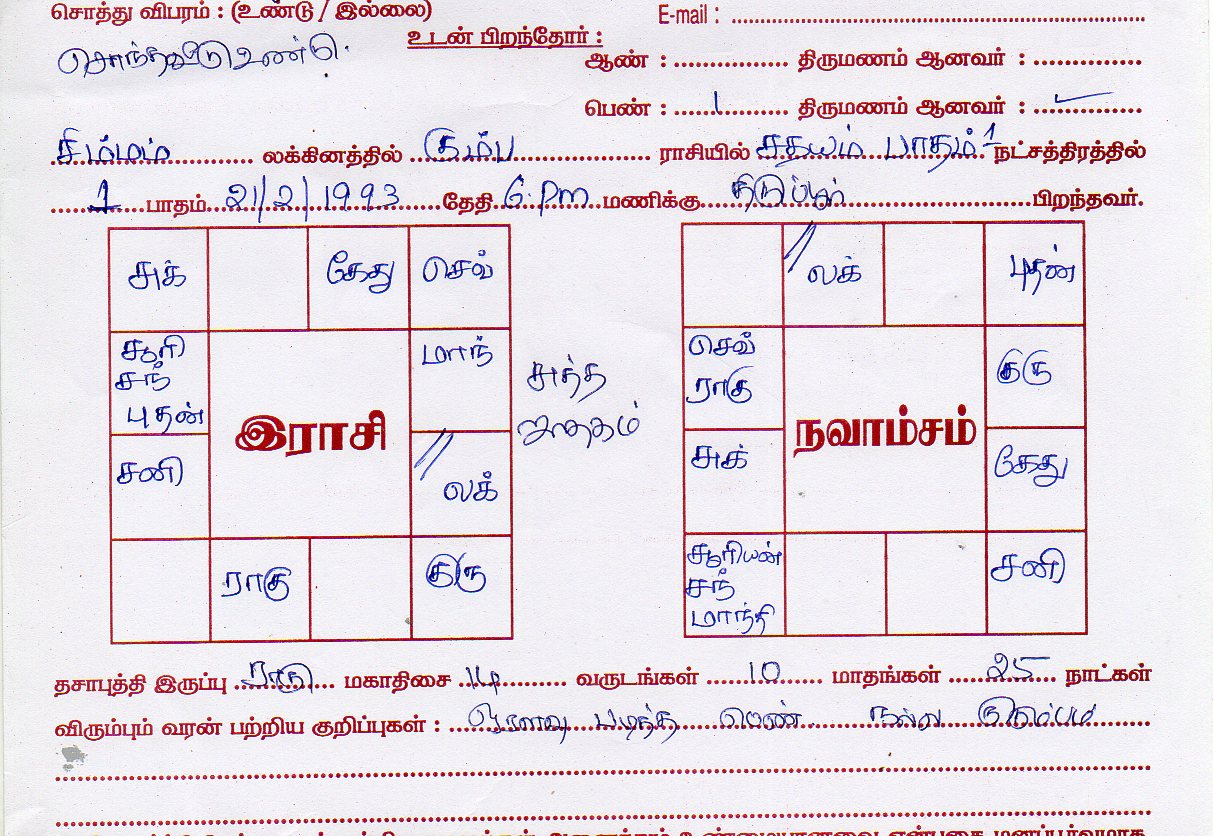 சொத்து விபரம் : (உண்டு / இல்லை) E-mail : 
சொந்தவீடு உண்டு.
உடன் பிறந்தோர் :
ஆண் : திருமணம் ஆனவர் :
பெண் : 1 திருமணம் ஆனவர் :
சிம்மம் லக்கினத்தில் கும்ப ராசியில் சதயம் பாதம் 1 நட்சத்திரத்தில்
1 பாதம் 21/2/1993 தேதி 6.PM மணிக்கு திருப்பூர் பிறந்தவர்.
சுக் கேது செவ்
சூரி
சந்
புதன்
மாந்
சனி
லக்
ராகு குரு
இராசி
சுத்த
ஜாதகம்
லக் புதன்
செவ்
ராகு
குரு
சுக் கேது
சூரியன்
சந்
மாந்தி
சனி
நவாம்சம்
தசாபுத்தி இருப்பு ராகு மகாதிசை 14 வருடங்கள் 10 மாதங்கள் 25 நாட்கள்
விரும்பும் வரன் பற்றிய குறிப்புகள் : ஓரளவு படித்த பெண் நல்ல குடும்பம்